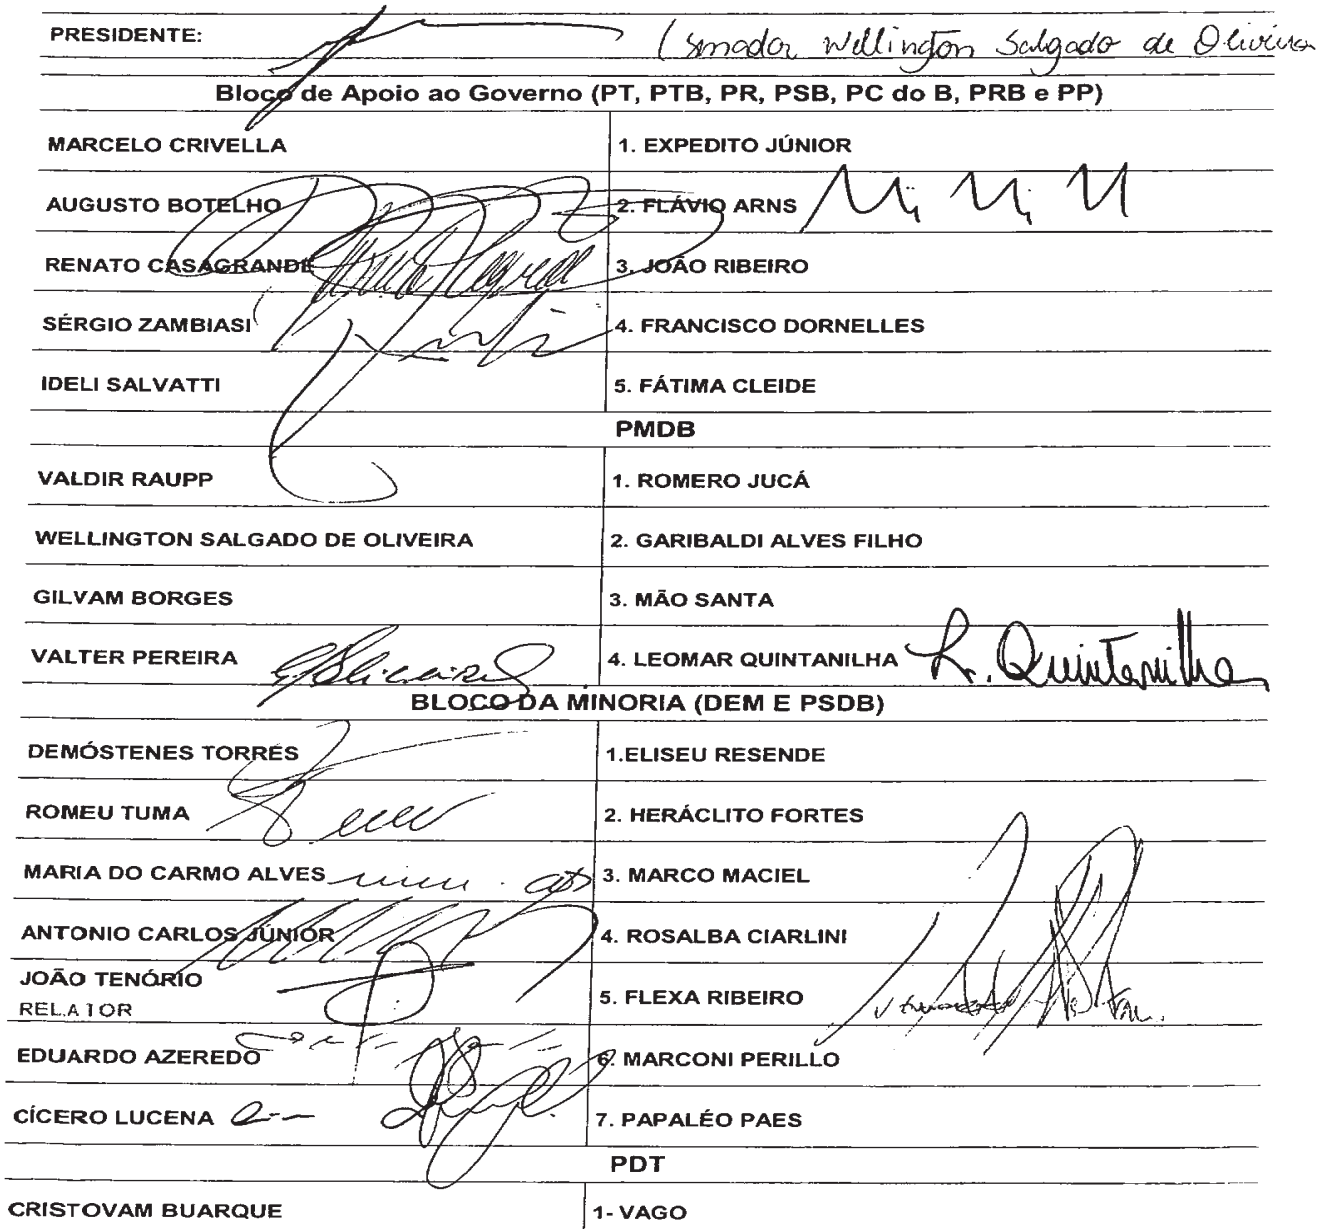 PRESIDENTE: (Senador Wellington Salgado de Oliveira
Bloco de Apoio ao Governo (PT, PTB, PR, PSB, PC do B, PRB e PP)
MARCELO CRIVELLA 1. EXPEDITO JÚNIOR
AUGUSTO BOTELHO 2. FLÁVIO ARNS
RENATO CASAGRANDE 3. JOÃO RIBEIRO
SÉRGIO ZAMBIASI 4. FRANCISCO DORNELLES
IDELI SALVATTI 5. FÁTIMA CLEIDE
PMDB
VALDIR RAUPP 1. ROMERO JUCÁ
WELLINGTON SALGADO DE OLIVEIRA 2. GARIBALDI ALVES FILHO
GILVAM BORGES 3. MÃO SANTA
VALTER PEREIRA 4. LEOMAR QUINTANILHA L. Quintanilha
BLOCO DA MINORIA (DEM E PSDB)
DEMÓSTENES TORRES 1.ELISEU RESENDE
ROMEU TUMA 2. HERÁCLITO FORTES
MARIA DO CARMO ALVES 3. MARCO MACIEL
ANTONIO CARLOS JÚNIOR 4. ROSALBA CIARLINI
JOÃO TENÓRIO
RELATOR 5. FLEXA RIBEIRO
EDUARDO AZEREDO 6. MARCONI PERILLO
CÍCERO LUCENA 7. PAPALÉO PAES
PDT
CRISTOVAM BUARQUE 1- VAGO